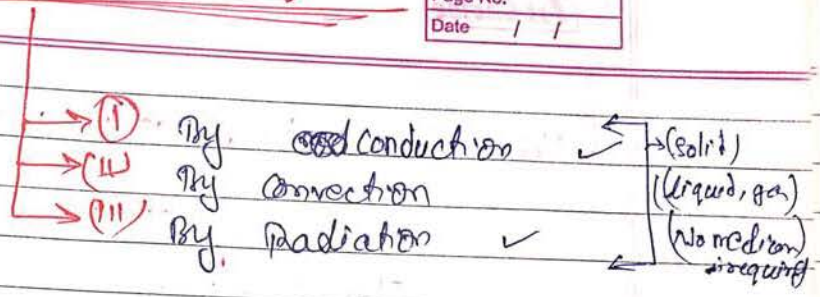 Page No.
Date / /
(I) By. conduction ✓ → (Solid)
(II) By convection (liquid, gas)
(III) By. Radiation ✓ (No medium
requird